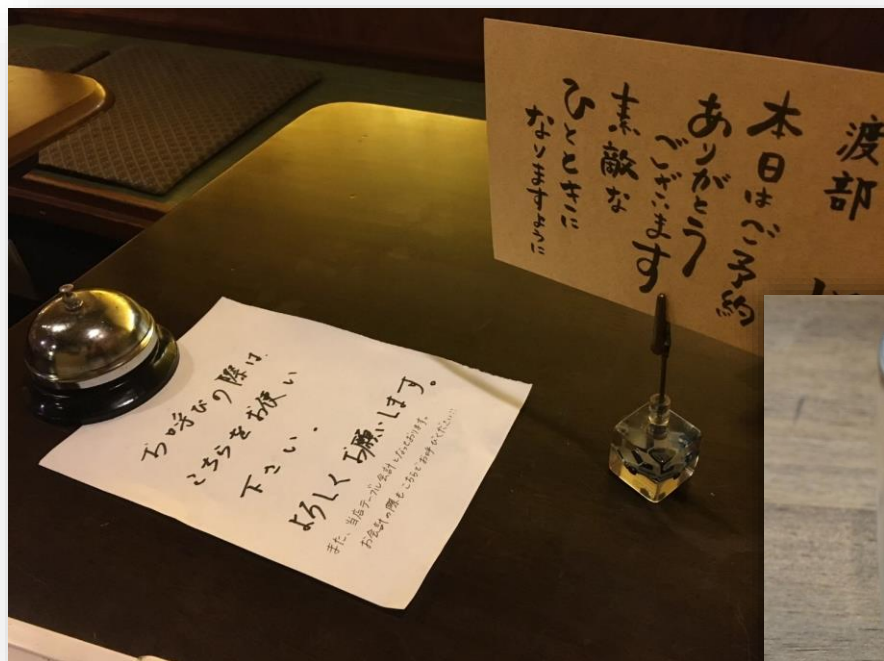 渡部
本日はご予約
ありがとう
ございます
素敵な
ひとときに
なりますように
お呼びの際は、
こちらをお使い
下さい。
よろしくお願いします。
また、当店テーブル会計となっております。
お会計の際もこちらでお呼びください!!